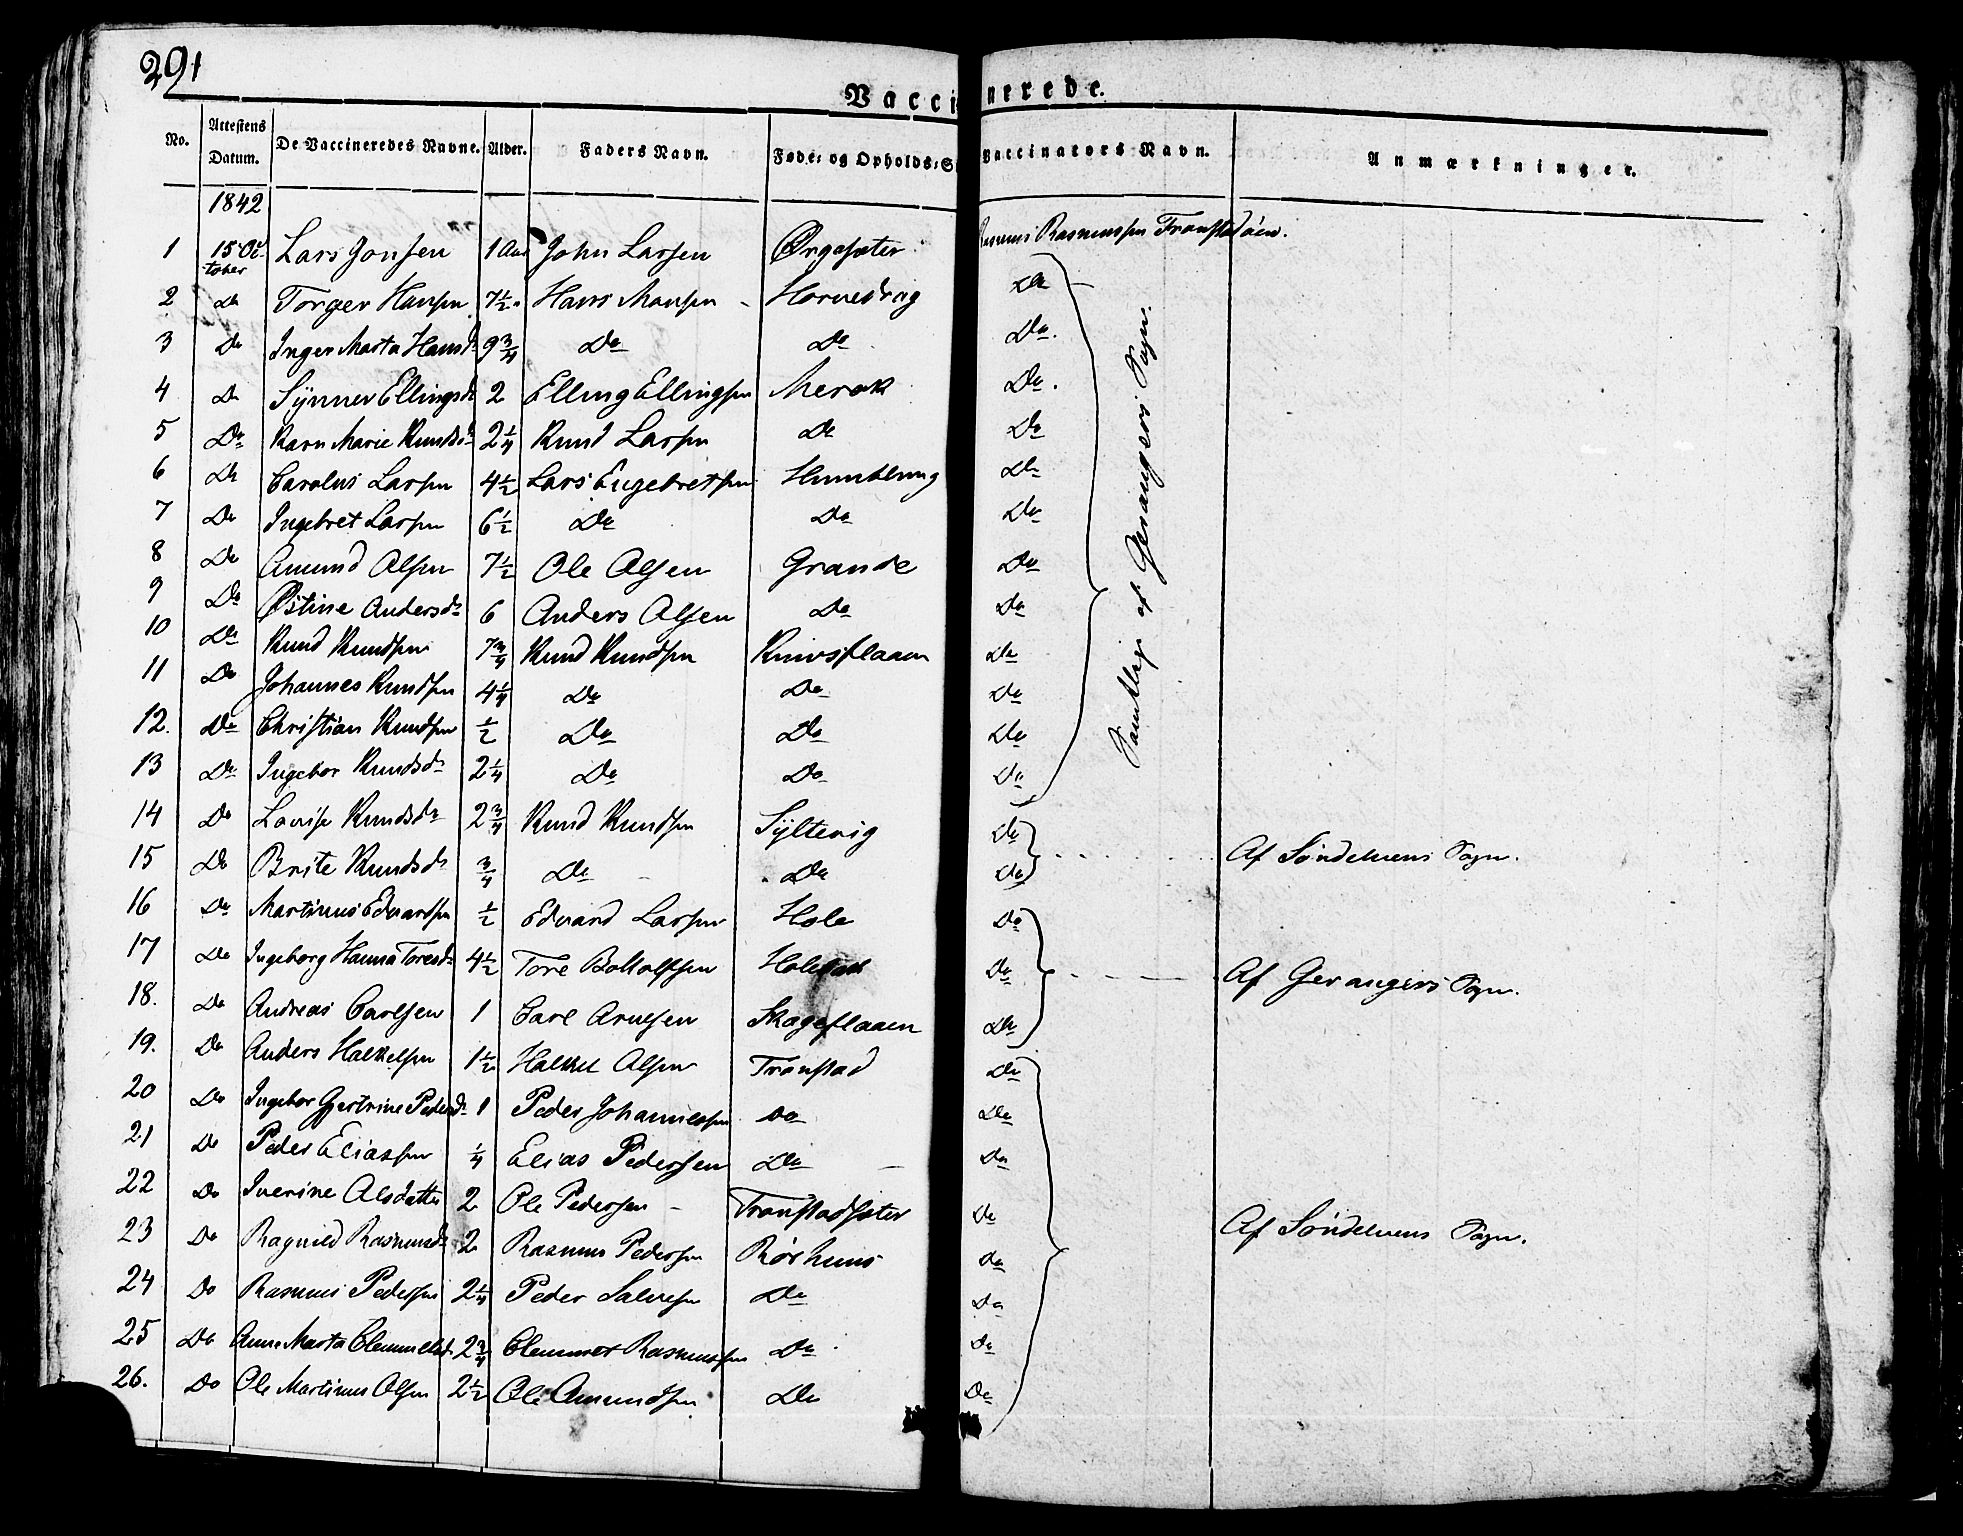 291
Vaccinerede.
No. | Attestens Datum. | De Vaccineredes Navne. | Alder. | Faders Navn. | Føde- og Opholds-S | Vaccinators Navn. | Anmærkninger.
1842
1 | 15 October | Lars Jonsen | 1 Aar | John Larsen | Ørgesæter | Rasmus Rasmussen Tronstadøen.
2 | Do | Torger Hansen | 7½ | Hans Monsen | Hornedrag | Do
3 | Do | Inger Marta Hansd | 9¾ | Do | Do | Do.
4 | Do | Synner Ellingsd | 2 | Elling Ellingsen | Merok | Do.
5 | Do | Karn Marie Knudsd | 2¼ | Knud Larsen | Do | Do
6 | Do | Carolus Larsen | 4½ | Lars Engebretsen | Humblung | Do
7 | Do | Ingebret Larsen | 6½ | Do | Do | Do
8 | Do | Amund Olsen | 7½ | Ole Olsen | Grande | Do
9 | Do | Østine Andersd | 6 | Anders Olsen | Do | Do
10 | Do | Knud Knudsen | 7¾ | Knud Knudsen | Knivsflaaen | Do
11 | Do | Johannes Knudsen | 4¼ | Do | Do | Do
12. | Do | Christian Knudsen | ½ | Do | Do | Do
13 | Do | Ingebor Knudsd | 2¼ | Do | Do | Do
Samtlige af Gerangers Sogn.
14 | Do | Lovise Knudsd | 2¾ | Knud Knudsen | Syltevig | Do
15 | Do | Brite Knudsd | ¾ | Do | Do | Do | Af Søndelvens Sogn.
16 | Do | Martinus Edvardsen | ½ | Edvard Larsen | Hole | Do
17 | Do | Ingeborg Hanna Toresd | 4½ | Tore Bottolfsen | | Do | Af Gerangers Sogn.
18. | Do | Andreas Carlsen | 1 | Carl Arnesen | Skageflaaen | Do
19. | Do | Anders Halkelsen | 1½ | Halkel Olsen | Tronstad | Do
20 | Do | Ingebor Gjertrine Pedersd | 1 | Peder Johannessen | Do | Do
21 | Do | Peder Eliassen | ¼ | Elias Pedersen | Do | Do
22 | Do | Iverine Olsdatter | 2 | Ole Pedersen | Tronstadsæter | Do | Af Søndelvens Sogn.
23 | Do | Ragnild Rasmusd | 2 | Rasmus Pedersen | Rørhuus | Do
24 | Do | Rasmus Pedersen | 2¼ | Peder Salvesen | Do | Do
25 | Do | Anne Marta Clemmetsd | 2¾ | Clemmet Rasmussen | Do | Do
26. | Do | Ole Martinus Olsen | 2½ | Ole Amundsen | Do | Do